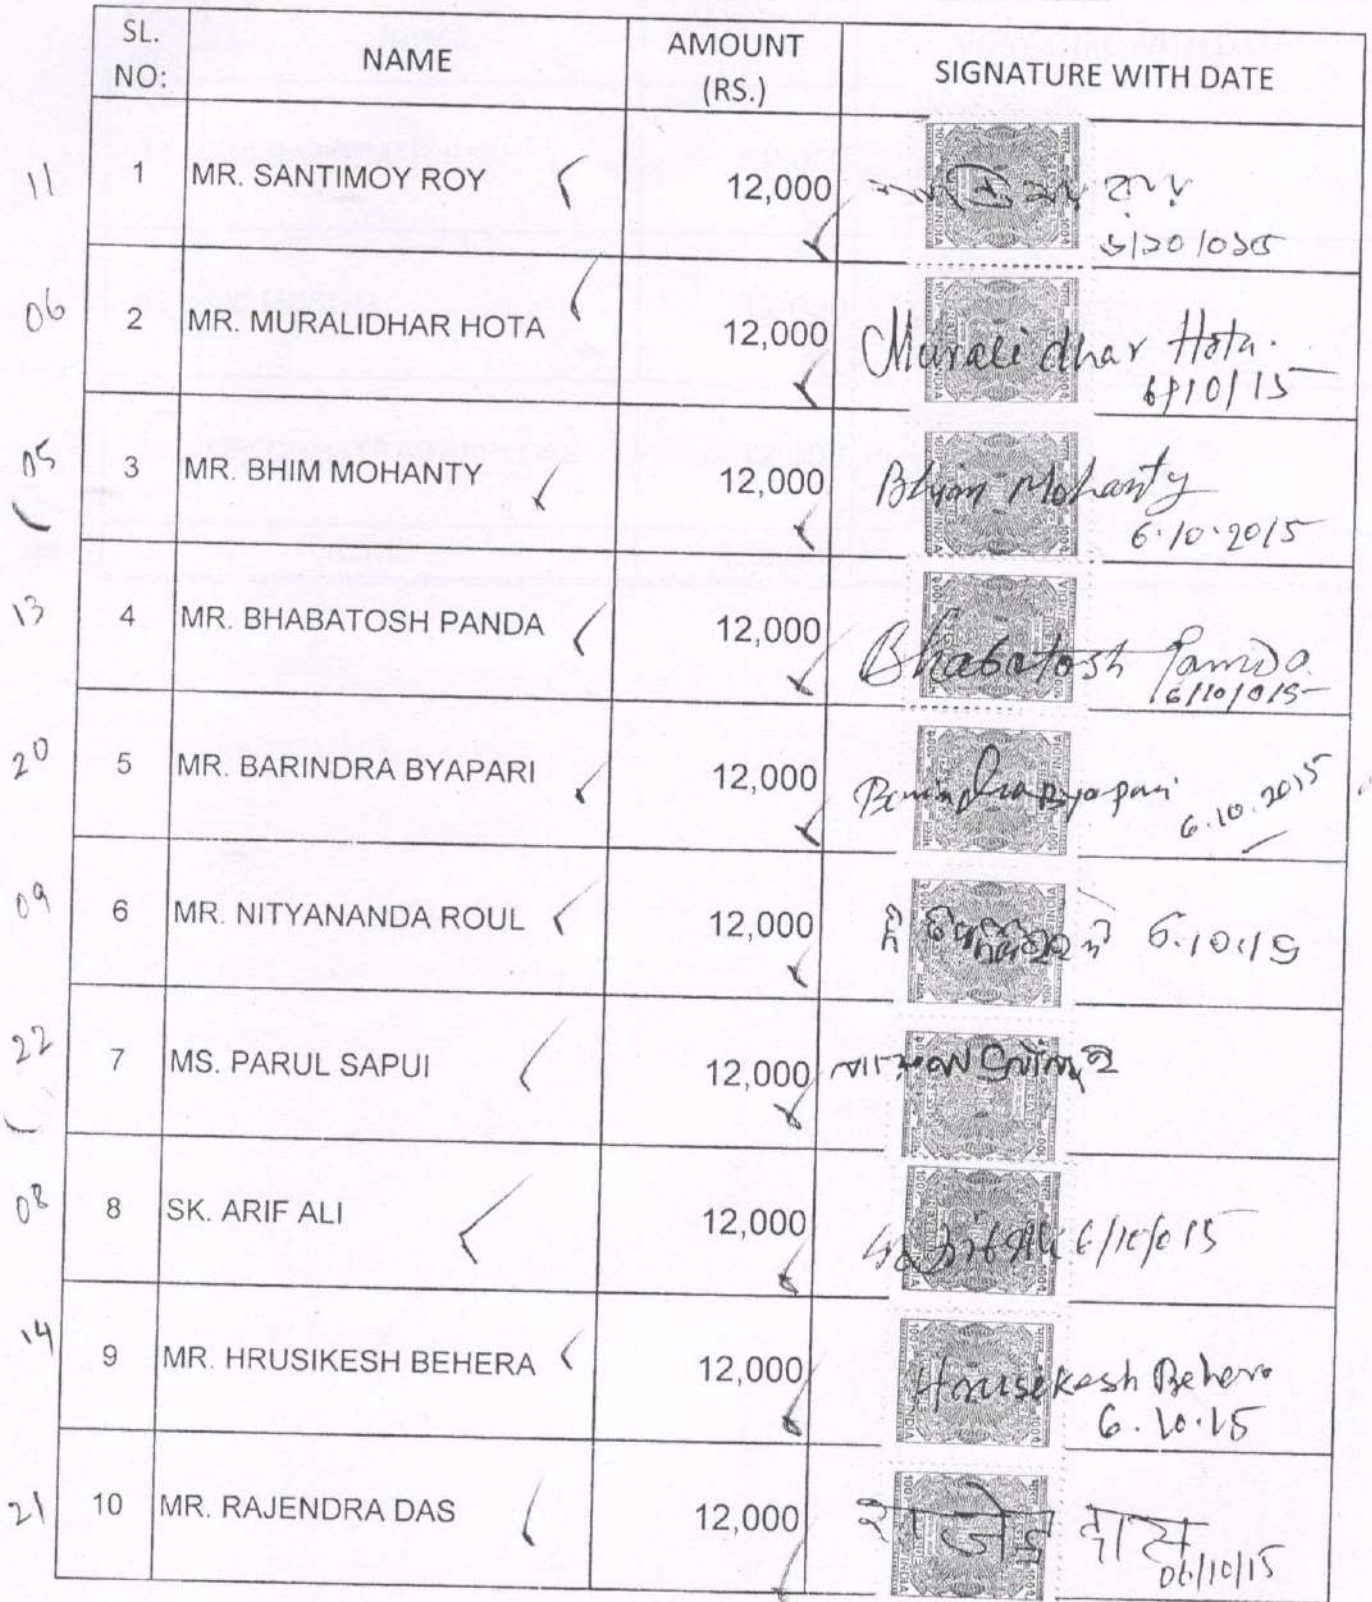 SL. NO: NAME AMOUNT (RS.) SIGNATURE WITH DATE
11 1 MR. SANTIMOY ROY 12,000
06 2 MR. MURALIDHAR HOTA 12,000 Muralidhar Hota.
6/10/15
05 3 MR. BHIM MOHANTY 12,000 Bhim Mohanty
6.10.2015
13 4 MR. BHABATOSH PANDA 12,000 Bhabatosh Panda
6/10/015
20 5 MR. BARINDRA BYAPARI 12,000 Barindra Byapari 6.10.2015
09 6 MR. NITYANANDA ROUL 12,000 6.10.15
22 7 MS. PARUL SAPUI 12,000
08 8 SK. ARIF ALI 12,000 6/10/015
14 9 MR. HRUSIKESH BEHERA 12,000 Hrusekesh Behera
6.10.15
21 10 MR. RAJENDRA DAS 12,000
06/10/15